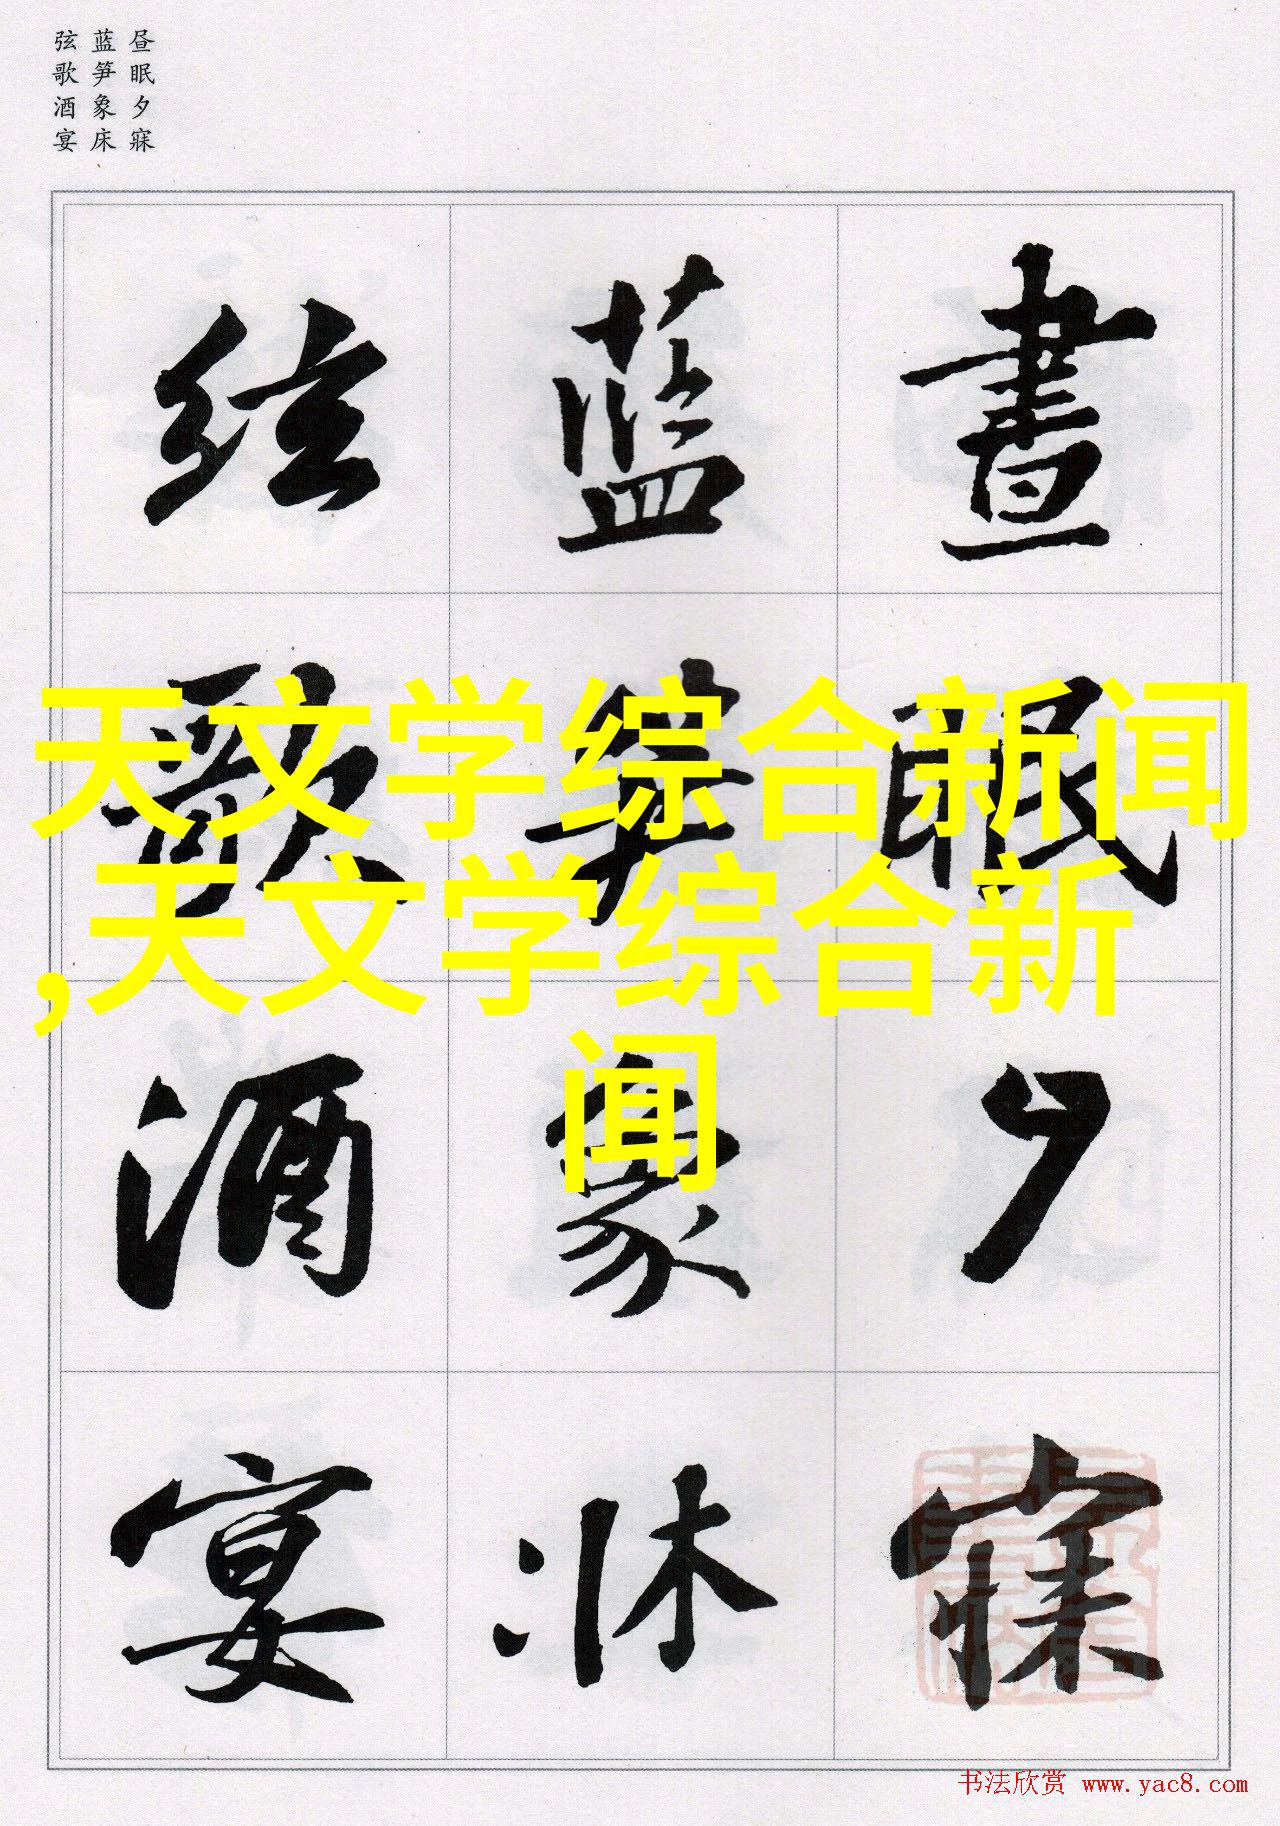 昼眠夕寐
蓝笋象床
弦歌酒宴
晝眠夕寐
藍笋象牀
絃歌酒宴
天文学综合新闻
,天文学综合新
闻
书法欣赏 www.yac8.com